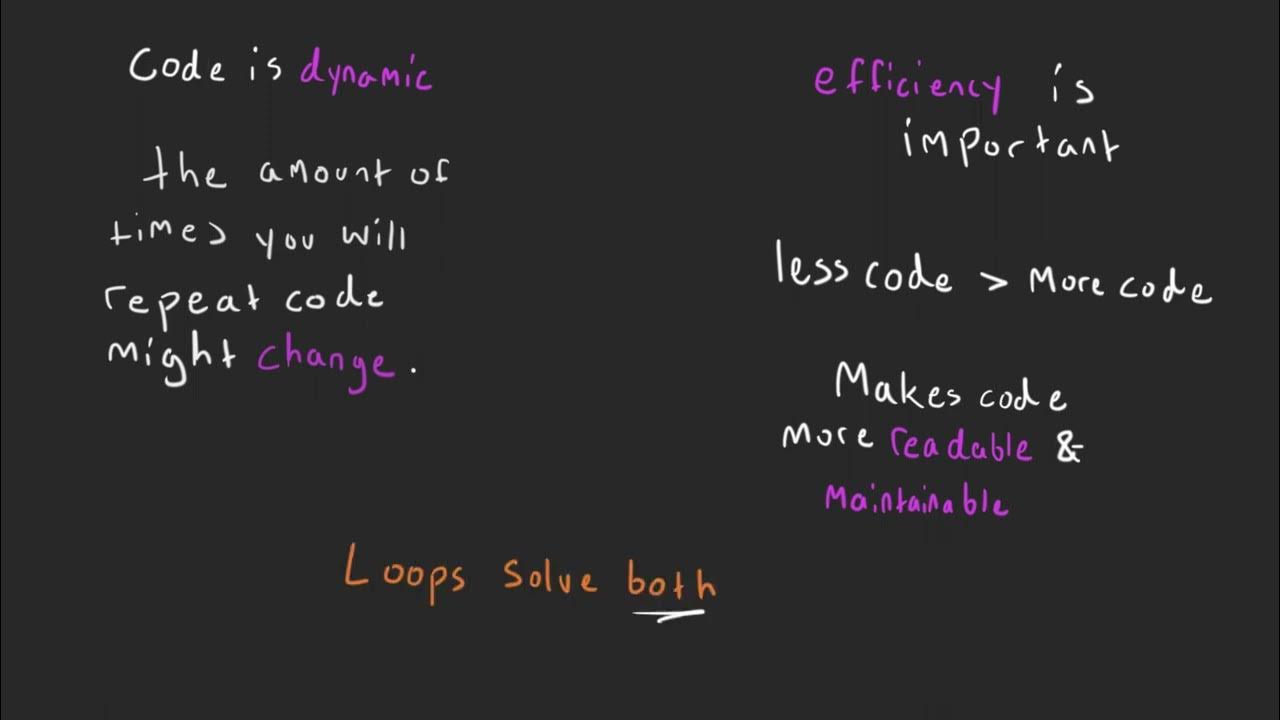 Code is dynamic
the amount of
times you will
repeat code
might change.
efficiency is
important
less code > More code
Makes code
more readable &
maintainable
Loops solve both